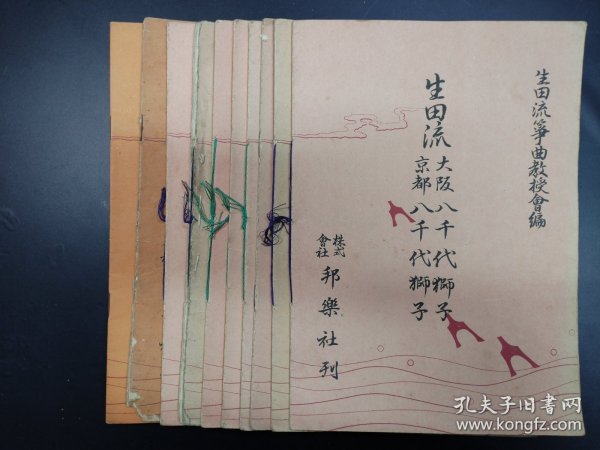 生田流箏曲教授會編
生田流
大阪八千代獅子
京都八千代獅子
株式會社
邦樂社刊
孔夫子旧书网
www.kongfz.com